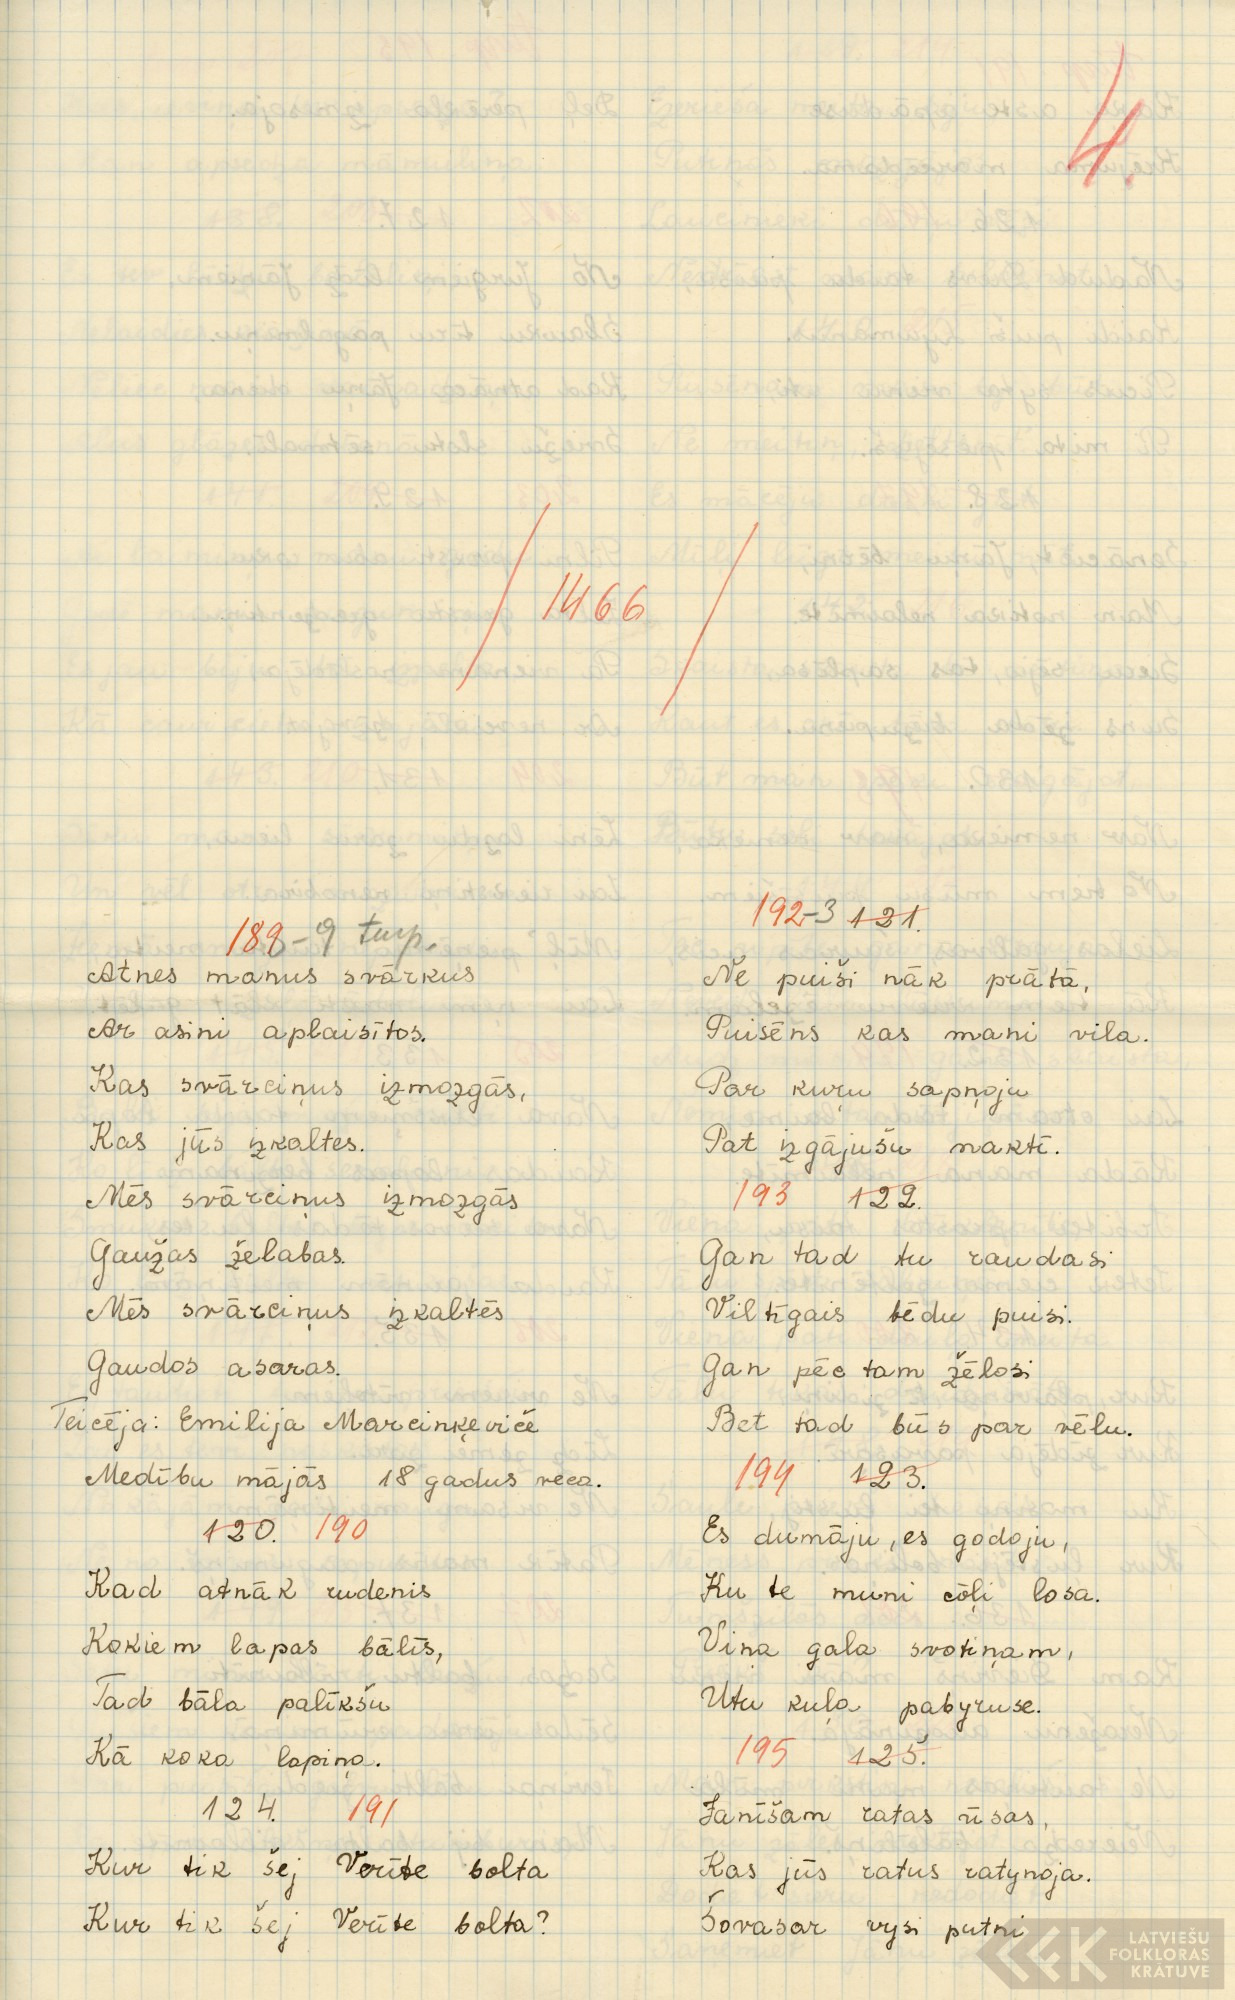 4.
/ 1466 /
189-9 turp.
Atnes manus svārkus
Ar asini aplaisītos.
Kas svārciņus izmozgās,
Kas jūs izkaltes.
Mēs svārciņus izmozgās
Gaužas želabas.
Mēs svārciņus izkaltēs
Gaudos asaras.
Teicēja: Emilija Marcinķevičē
Medību mājās 18 gadus veca.
120. 190
Kad atnāk rudenis
Kokiem lapas bālīs,
Tad bāla palīkšu
Kā koka lapiņa.
124. 191
Kur tik šej Verīte bolta
Kur tik šej Verīte bolta?
192-3 121.
Ne puiši nāk prātā,
Puisēns kas mani vila.
Par kuŗu sapņoju
Pat izgājušu naktī.
193 122.
Gan tad tu raudasi
Viltīgais bēdu puisi.
Gan pēc tam žēlosi
Bet tad būs par vēlu.
194 123.
Es dumāju, es godoju,
Ku te muni cōļi losa.
Vina gala svotiņam,
Utu kuļa pabyruse.
195 125.
Janīšam ratas rīsas,
Kas jūs ratus ratynoja.
Šovasar vysi putni
LATVIEŠU
FOLKLORAS
KRATUVE